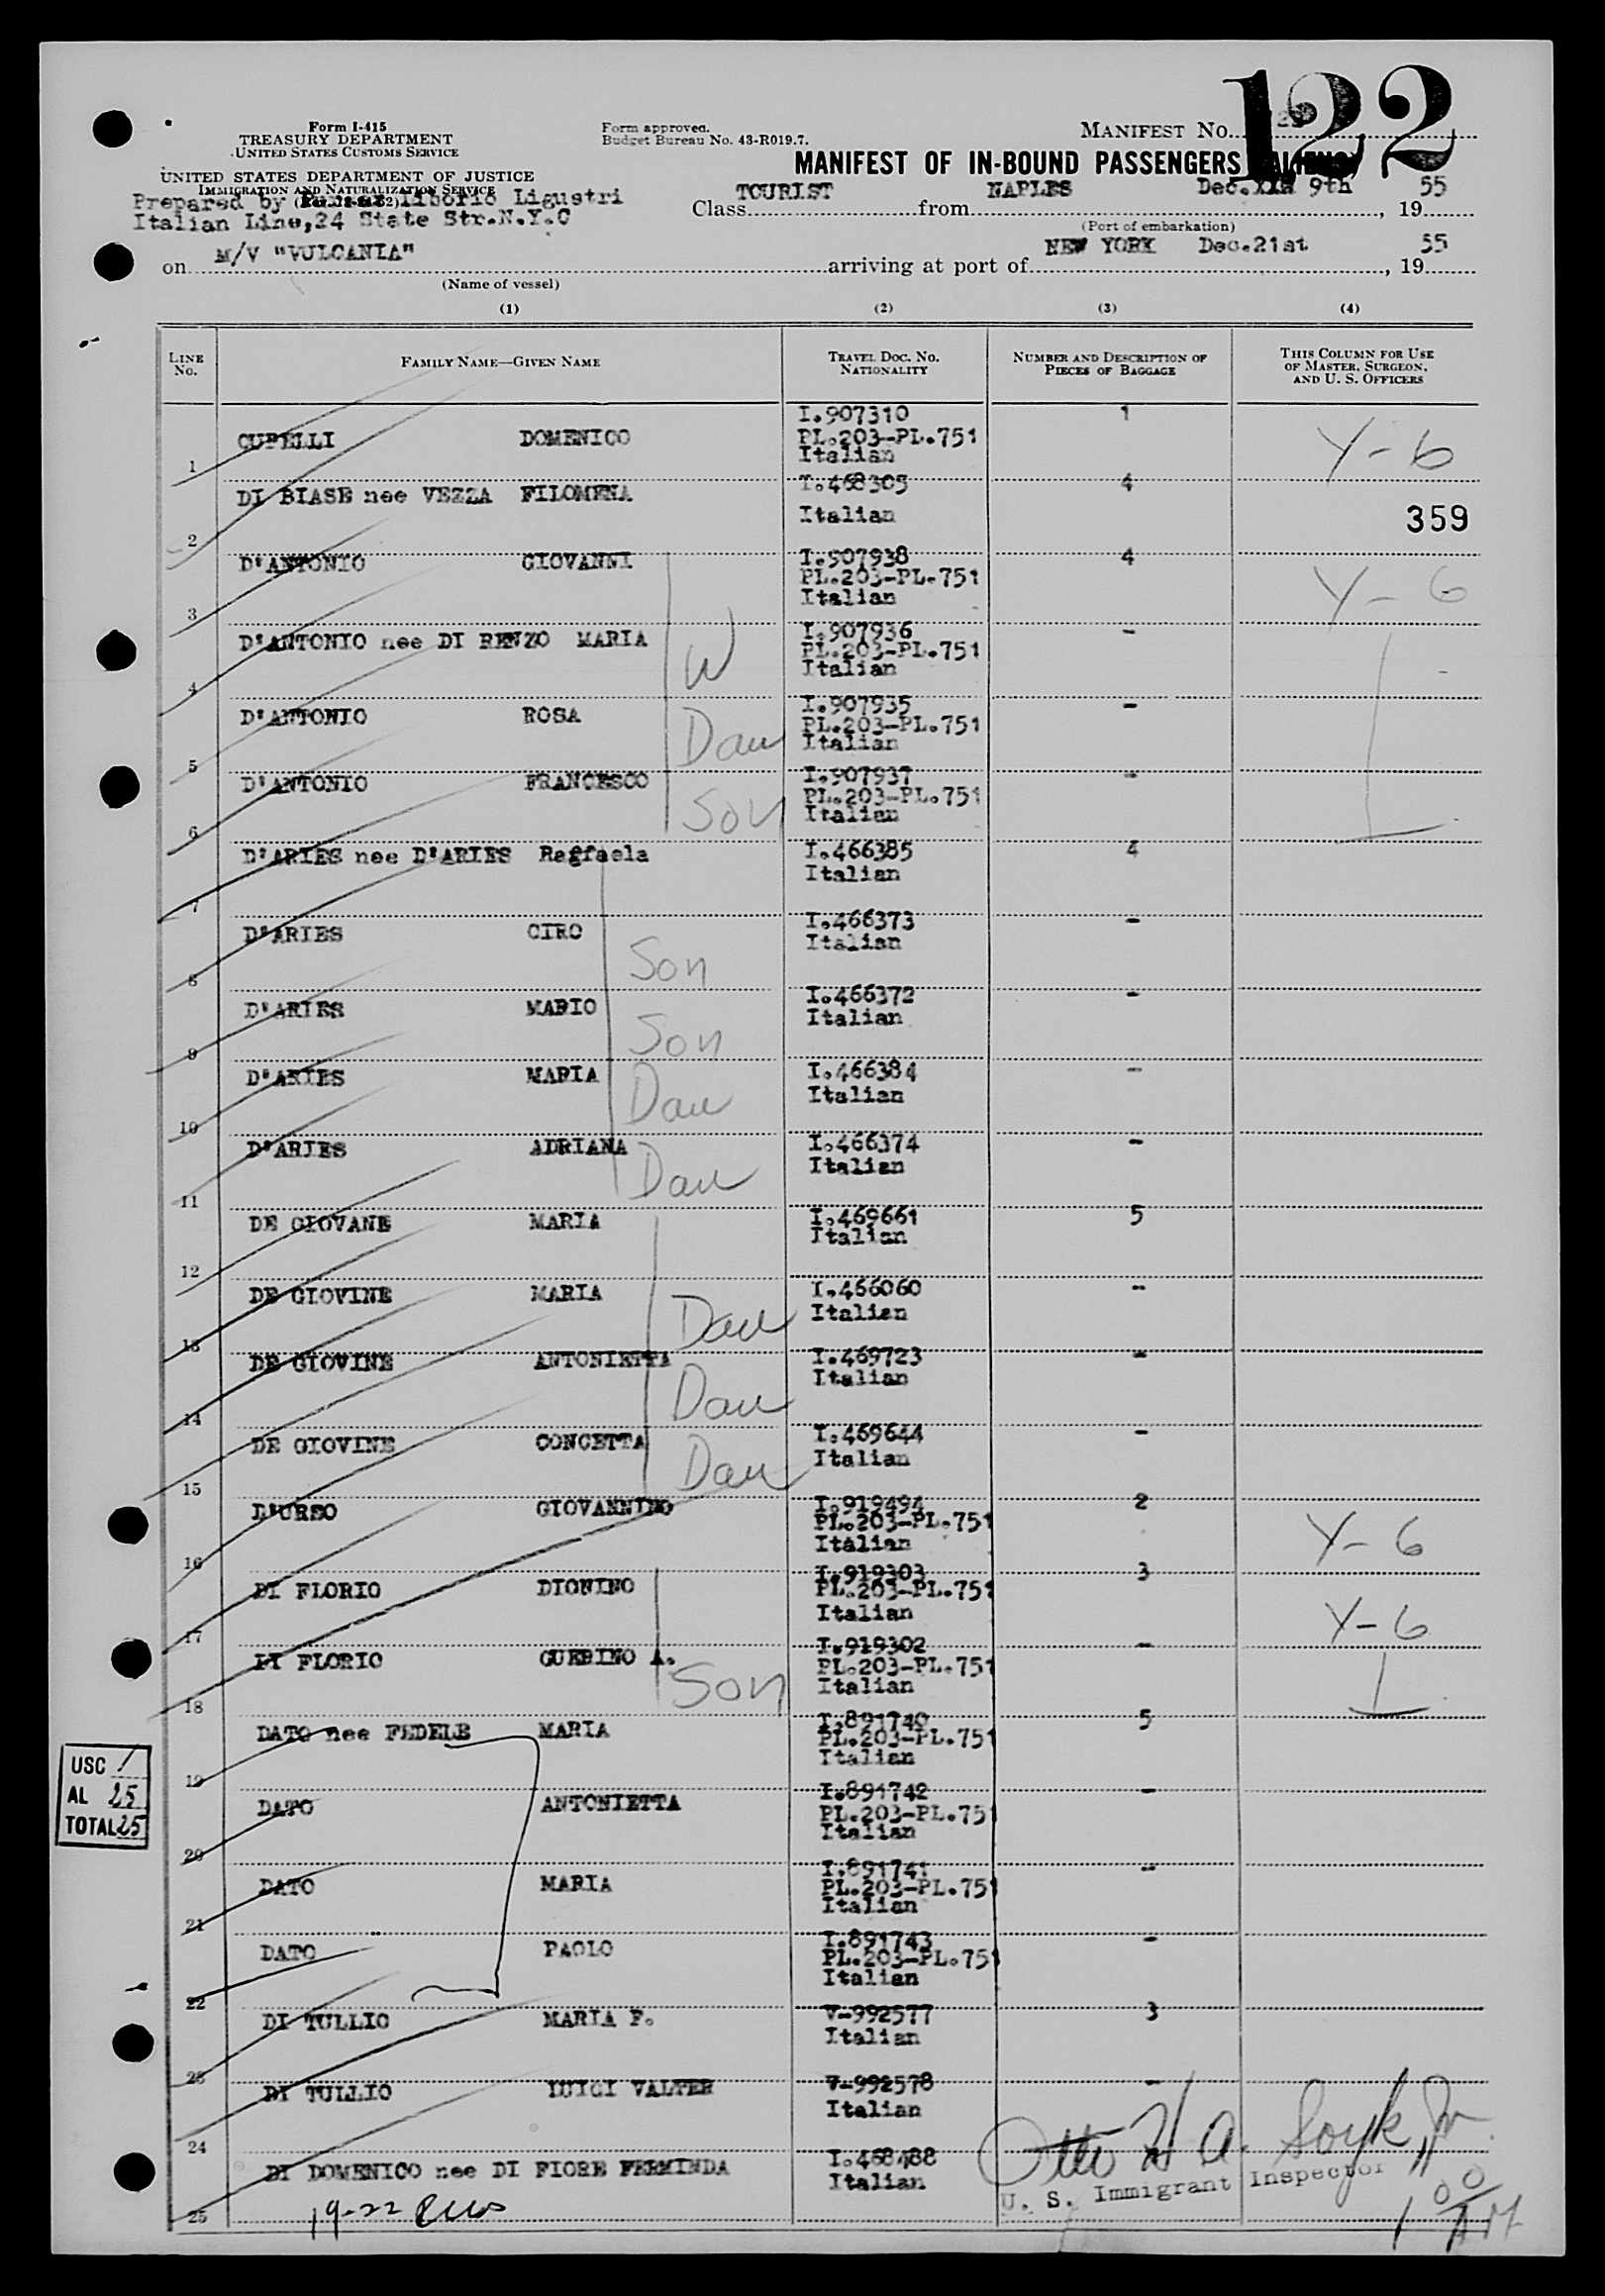 122
Form I-415
TREASURY DEPARTMENT
UNITED STATES CUSTOMS SERVICE
UNITED STATES DEPARTMENT OF JUSTICE
IMMIGRATION AND NATURALIZATION SERVICE
Form approved.
Budget Bureau No. 43-R019.7.
MANIFEST NO.
MANIFEST OF IN-BOUND PASSENGERS
Prepared by Purser Liborio Ligustri
Italian Line,24 State Str.N.Y.C
Class TOURIST from NAPLES Dec. 9th, 19 55
(Port of embarkation)
on M/V "VULCANIA" arriving at port of NEW YORK Dec.21st, 19 55
(Name of vessel)
(1) (2) (3) (4)
LINE No. FAMILY NAME—GIVEN NAME TRAVEL DOC. NO. NATIONALITY NUMBER AND DESCRIPTION OF PIECES OF BAGGAGE THIS COLUMN FOR USE OF MASTER, SURGEON, AND U. S. OFFICERS
1 CUPELLI DOMENICO I.907310 PL.203-PL.751 Italian 1 Y-6
2 DI BIASE nee VEZZA FILOMENA I.468305 Italian 4 359
3 D'ANTONIO GIOVANNI I.907938 PL.203-PL.751 Italian 4 Y-6
4 D'ANTONIO nee DI RENZO MARIA W I.907936 PL.203-PL.751 Italian -
5 D'ANTONIO ROSA Dau I.907935 PL.203-PL.751 Italian -
6 D'ANTONIO FRANCESCO Son I.907937 PL.203-PL.751 Italian -
7 D'ARIES nee D'ARIES Raffaela I.466385 Italian 4
8 D'ARIES CIRO Son I.466373 Italian -
9 D'ARIES MARIO Son I.466372 Italian -
10 D'ARIES MARIA Dau I.466384 Italian -
11 D'ARIES ADRIANA Dau I.466374 Italian -
12 DE GIOVANE MARIA I.469661 Italian 5
13 DE GIOVINE MARIA Dau I.466060 Italian -
14 DE GIOVINE ANTONIETTA Dau I.469723 Italian -
15 DE GIOVINE CONCETTA Dau I.469644 Italian -
16 D'URSO GIOVANNINO I.919494 PL.203-PL.751 Italian 2 Y-6
17 DI FLORIO DIONINO I.919303 PL.203-PL.751 Italian 3 Y-6
18 DI FLORIO GUERINO A. Son I.919302 PL.203-PL.751 Italian -
19 DATO nee FEDELE MARIA I.891740 PL.203-PL.751 Italian 5
20 DATO ANTONIETTA I.891742 PL.203-PL.751 Italian -
21 DATO MARIA I.891741 PL.203-PL.751 Italian -
22 DATO PAOLO I.891743 PL.203-PL.751 Italian -
23 DI TULLIO MARIA F. V-992577 Italian 3
24 DI TULLIO LUIGI VALTER V-992578 Italian -
25 DI DOMENICO nee DI FIORE FERMINDA Italian
USC /
AL 25
TOTAL 25
Otto H A. Soyk, Jr.
U. S. Immigrant Inspector
19-22